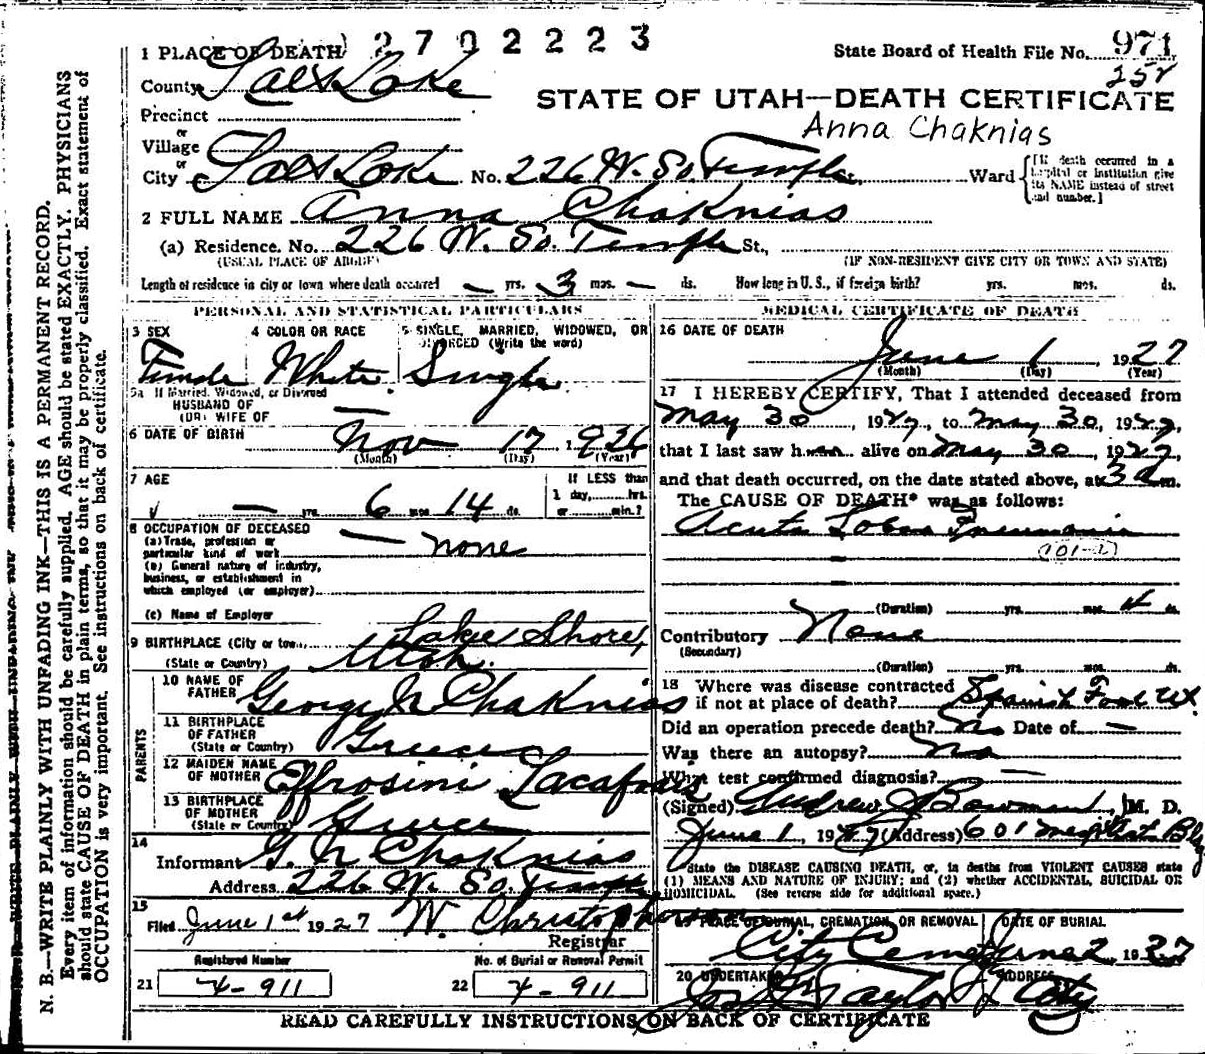 1 PLACE OF DEATH 2702223 State Board of Health File No. 971
County Salt Lake 252
STATE OF UTAH—DEATH CERTIFICATE
Precinct
Anna Chaknias
or
Village
or
City Salt Lake No. 226 W. So. Temple Ward [If death occurred in a hospital or institution give its NAME instead of street and number.]
2 FULL NAME Anna Chaknias
(a) Residence. No. 226 W. So. Temple St.,
(USUAL PLACE OF ABODE) (IF NON-RESIDENT GIVE CITY OR TOWN AND STATE)
Length of residence in city or town where death occurred — yrs. 3 mos. — ds. How long in U. S., if foreign birth? yrs. mos. ds.
PERSONAL AND STATISTICAL PARTICULARS
3 SEX 4 COLOR OR RACE 5 SINGLE, MARRIED, WIDOWED, OR DIVORCED (Write the word)
Female White Single
5a If Married, Widowed, or Divorced
HUSBAND OF
(OR) WIFE OF —
6 DATE OF BIRTH Nov 17 1926
(Month) (Day) (Year)
7 AGE If LESS than
— yrs. 6 mos. 14 ds. 1 day, hrs.
or min.?
8 OCCUPATION OF DECEASED
(a) Trade, profession or
particular kind of work — none
(b) General nature of industry,
business, or establishment in
which employed (or employer)
(c) Name of Employer
9 BIRTHPLACE (City or town) Lake Shore,
(State or Country) Utah.
PARENTS
10 NAME OF FATHER George N Chaknias
11 BIRTHPLACE OF FATHER (State or Country) Greece
12 MAIDEN NAME OF MOTHER Effrosini
13 BIRTHPLACE OF MOTHER (State or Country) Greece
14
Informant G. N Chaknias
Address 226 W. So. Temple
15
Filed June 1st 1927 W. Christopherson
Registrar
Registered Number No. of Burial or Removal Permit
21 4-911 22 4-911
MEDICAL CERTIFICATE OF DEATH
16 DATE OF DEATH
June 1, 1927
(Month) (Day) (Year)
17 I HEREBY CERTIFY, That I attended deceased from
May 30, 1927, to May 30, 1927,
that I last saw her alive on May 30, 1927,
and that death occurred, on the date stated above, at 3 a m.
The CAUSE OF DEATH* was as follows:
Acute Lobar Pneumonia
(101-2)
(Duration) yrs. mos. 4 ds.
Contributory None
(Secondary)
(Duration) yrs. mos. ds.
18 Where was disease contracted
if not at place of death? Spanish Fork Ut.
Did an operation precede death? No Date of —
Was there an autopsy? No
What test confirmed diagnosis? —
(Signed) Andrew J Bowman, M. D.
June 1, 1927 (Address) 601 Bldg
*State the DISEASE CAUSING DEATH, or, in deaths from VIOLENT CAUSES state
(1) MEANS AND NATURE OF INJURY; and (2) whether ACCIDENTAL, SUICIDAL OR
HOMICIDAL. (See reverse side for additional space.)
19 PLACE OF BURIAL, CREMATION, OR REMOVAL DATE OF BURIAL
City Cem June 2 1927
20 UNDERTAKER ADDRESS
Taylor City
READ CAREFULLY INSTRUCTIONS ON BACK OF CERTIFICATE
N. B.—WRITE PLAINLY WITH UNFADING INK—THIS IS A PERMANENT RECORD.
Every item of information should be carefully supplied. AGE should be stated EXACTLY. PHYSICIANS
should state CAUSE OF DEATH in plain terms, so that it may be properly classified. Exact statement of
OCCUPATION is very important. See instructions on back of certificate.